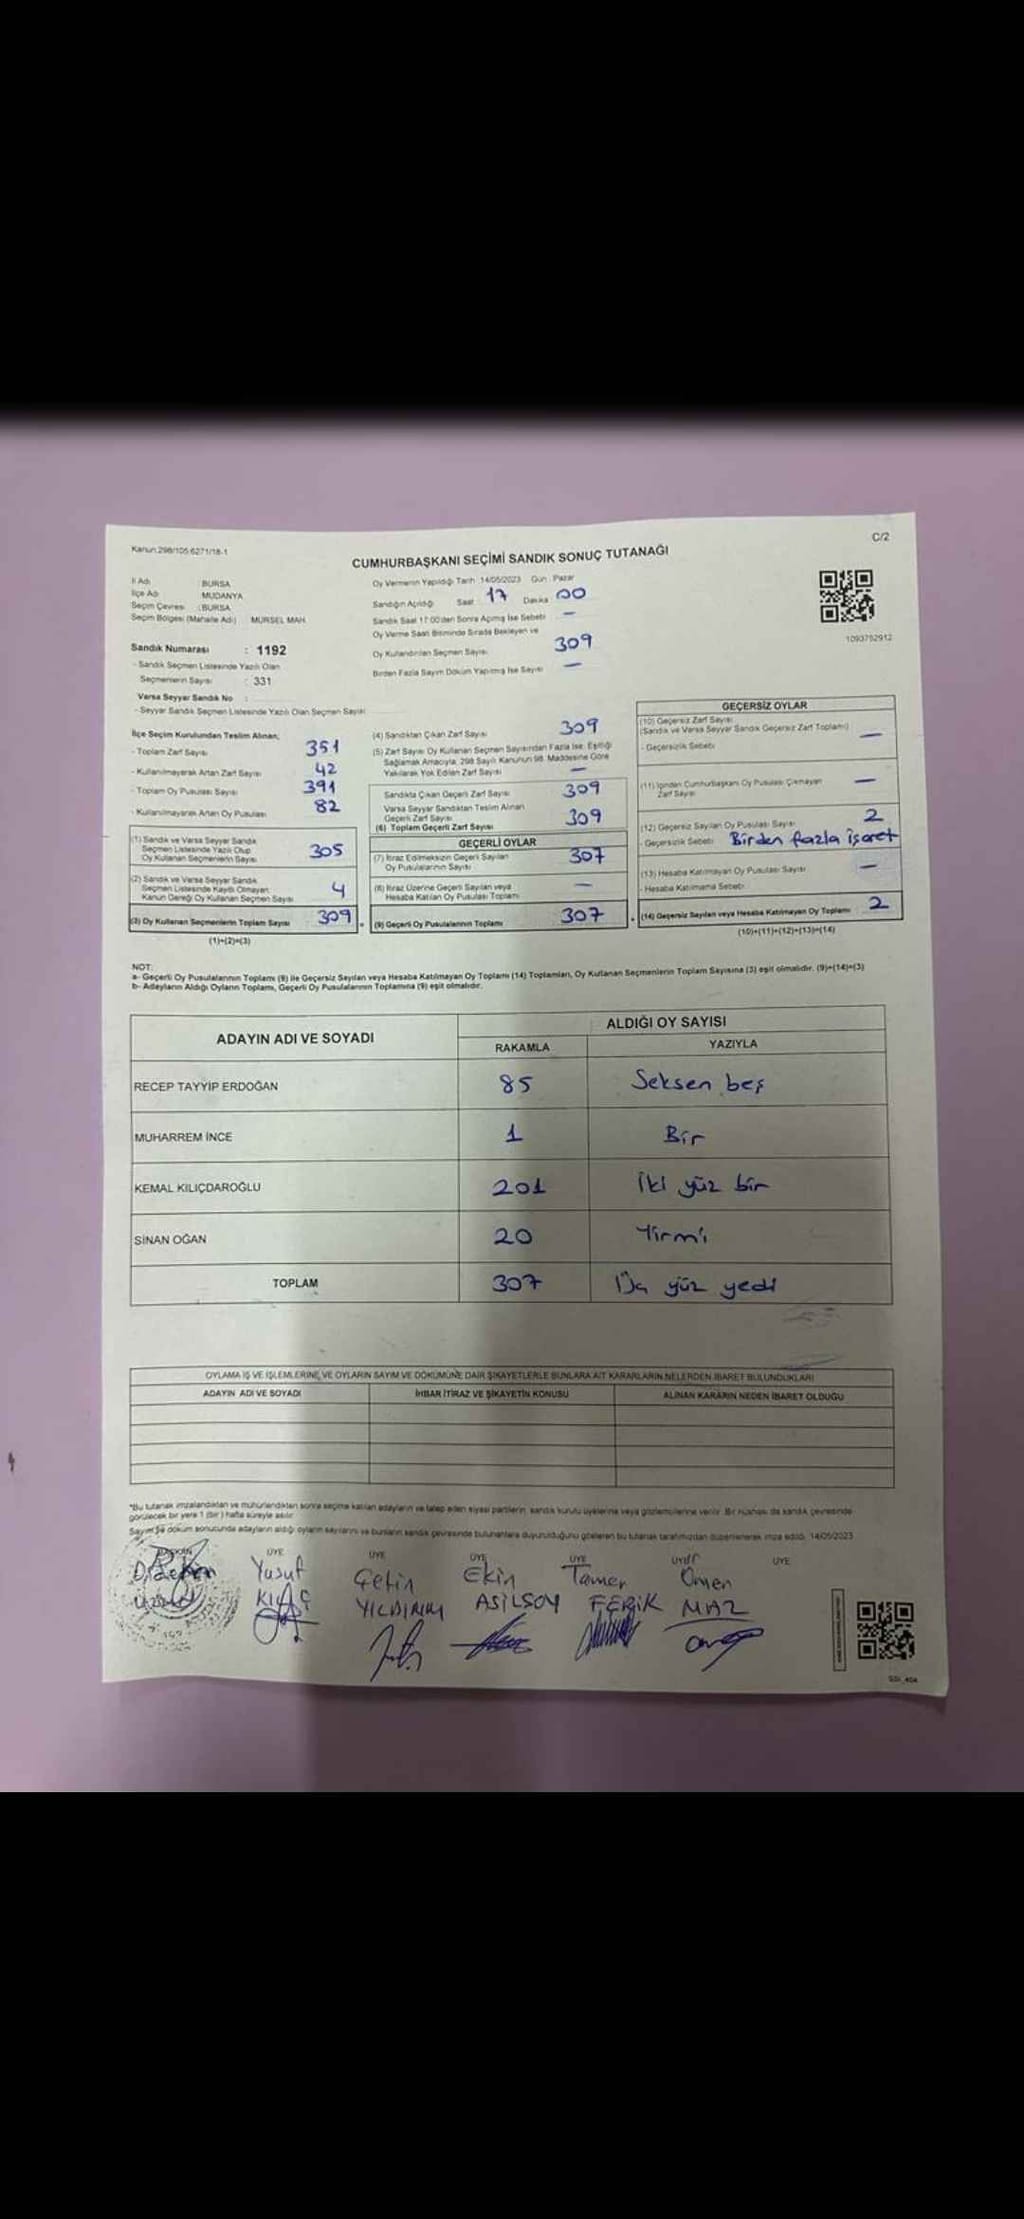 Kanun:298/105 6271/18-1
C/2
CUMHURBAŞKANI SEÇİMİ SANDIK SONUÇ TUTANAĞI
İl Adı : BURSA
İlçe Adı : MUDANYA
Seçim Çevresi : BURSA
Seçim Bölgesi (Mahalle Adı) MÜRSEL MAH.
Sandık Numarası : 1192
- Sandık Seçmen Listesinde Yazılı Olan
Seçmenlerin Sayısı : 331
Varsa Seyyar Sandık No :
- Seyyar Sandık Seçmen Listesinde Yazılı Olan Seçmen Sayısı
Oy Vermenin Yapıldığı Tarih 14/05/2023 Gün Pazar
Sandığın Açıldığı Saat 17 Dakika 00
Sandık Saat 17:00'den Sonra Açılmış İse Sebebi —
Oy Verme Saati Bitiminde Sırada Bekleyen ve
Oy Kullandırılan Seçmen Sayısı 309
Birden Fazla Sayım Döküm Yapılmış İse Sayısı —
1093752912
İlçe Seçim Kurulundan Teslim Alınan;
- Toplam Zarf Sayısı 351
- Kullanılmayarak Artan Zarf Sayısı 42
- Toplam Oy Pusulası Sayısı 391
- Kullanılmayarak Artan Oy Pusulası 82
(1) Sandık ve Varsa Seyyar Sandık
Seçmen Listesinde Yazılı Olup
Oy Kullanan Seçmenlerin Sayısı 305
(2) Sandık ve Varsa Seyyar Sandık
Seçmen Listesinde Kayıtlı Olmayan
Kanun Gereği Oy Kullanan Seçmen Sayısı 4
(3) Oy Kullanan Seçmenlerin Toplam Sayısı 309
(1)+(2)=(3)
(4) Sandıktan Çıkan Zarf Sayısı 309
(5) Zarf Sayısı Oy Kullanan Seçmen Sayısından Fazla İse, Eşitliği
Sağlamak Amacıyla, 298 Sayılı Kanunun 98. Maddesine Göre
Yakılarak Yok Edilen Zarf Sayısı —
Sandıkta Çıkan Geçerli Zarf Sayısı 309
Varsa Seyyar Sandıktan Teslim Alınan
Geçerli Zarf Sayısı
(6) Toplam Geçerli Zarf Sayısı 309
GEÇERLİ OYLAR
(7) İtiraz Edilmeksizin Geçerli Sayılan
Oy Pusulalarının Sayısı 307
(8) İtiraz Üzerine Geçerli Sayılan veya
Hesaba Katılan Oy Pusulası Toplamı —
(9) Geçerli Oy Pusulalarının Toplamı 307
GEÇERSİZ OYLAR
(10) Geçersiz Zarf Sayısı
(Sandık ve Varsa Seyyar Sandık Geçersiz Zarf Toplamı) —
- Geçersizlik Sebebi
(11) İçinden Cumhurbaşkanı Oy Pusulası Çıkmayan
Zarf Sayısı —
(12) Geçersiz Sayılan Oy Pusulası Sayısı 2
- Geçersizlik Sebebi Birden fazla işaret
(13) Hesaba Katılmayan Oy Pusulası Sayısı —
- Hesaba Katılmama Sebebi
(14) Geçersiz Sayılan veya Hesaba Katılmayan Oy Toplamı 2
(10)+(11)+(12)+(13)=(14)
NOT:
a- Geçerli Oy Pusulalarının Toplamı (9) ile Geçersiz Sayılan veya Hesaba Katılmayan Oy Toplamı (14) Toplamları, Oy Kullanan Seçmenlerin Toplam Sayısına (3) eşit olmalıdır. (9)+(14)=(3)
b- Adayların Aldığı Oyların Toplamı, Geçerli Oy Pusulalarının Toplamına (9) eşit olmalıdır.
ADAYIN ADI VE SOYADI
ALDIĞI OY SAYISI
RAKAMLA YAZIYLA
RECEP TAYYİP ERDOĞAN 85 Seksen beş
MUHARREM İNCE 1 Bir
KEMAL KILIÇDAROĞLU 201 İki yüz bir
SİNAN OĞAN 20 Yirmi
TOPLAM 307 Üç yüz yedi
OYLAMA İŞ VE İŞLEMLERİNE VE OYLARIN SAYIM VE DÖKÜMÜNE DAİR ŞİKAYETLERLE BUNLARA AİT KARARLARIN NELERDEN İBARET BULUNDUKLARI
ADAYIN ADI VE SOYADI İHBAR İTİRAZ VE ŞİKAYETİN KONUSU ALINAN KARARIN NEDEN İBARET OLDUĞU
*Bu tutanak imzalandıktan ve mühürlendikten sonra seçime katılan adayların ve talep eden siyasi partilerin, sandık kurulu üyelerine veya gözlemcilerine verilir. Bir nüshası da sandık çevresinde
görülecek bir yere 1 (bir) hafta süreyle asılır.
Sayım ve döküm sonucunda adayların aldığı oyların sayılarını ve bunların sandık çevresinde bulunanlara duyurulduğunu gösteren bu tutanak tarafımızdan düzenlenerek imza edildi. 14/05/2023
ÜYE ÜYE ÜYE ÜYE ÜYE ÜYE
Yusuf Çetin Ekin Tamer
KILIÇ YILDIRIM ASİLSOY FERİK MAZ